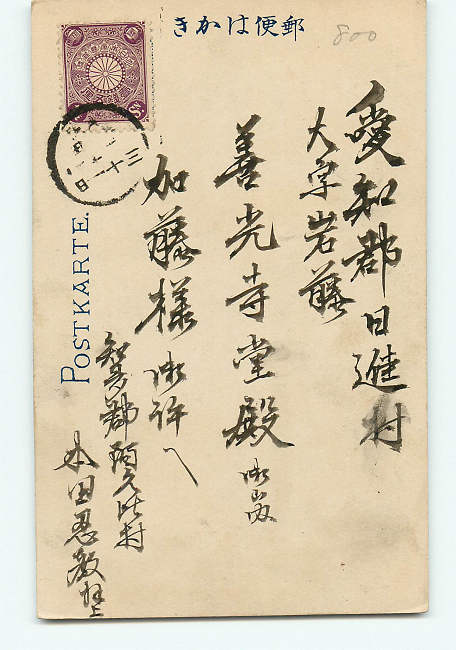 きかはび便郵
800
愛知郡日進村
大字岩藤
善光寺堂殿
加藤様御許へ
知多郡阿久比村
本田忍教拝上
POSTKARTE.